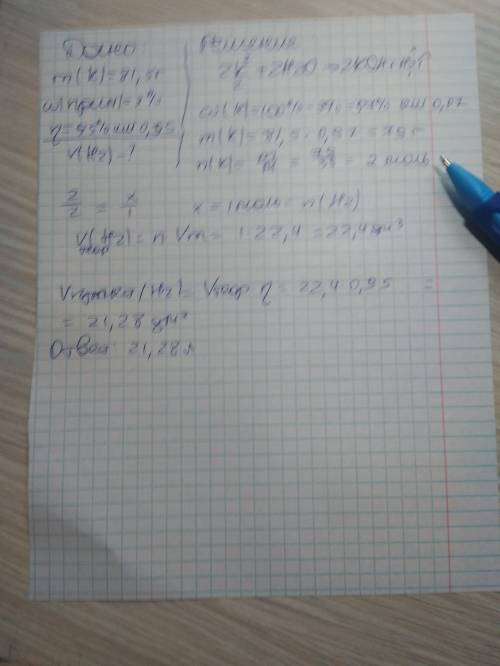 Дано:
m(K)=81,5г
ω(прим)=3%
η=95% или 0,95
V(H2)-?
Решение
2K+2H2O=>2KOH+H2↑
ω(K)=100%-3%=97% или 0,97
m(K)=81,5·0,97=79г
n(K)=m/M=79/39=2 моль
2/2=x/1 x=1моль=n(H2)
Vтеор(H2)=n·Vm=1·22,4=22,4дм³
Vпрактич(H2)=Vтеор·η=22,4·0,95=
=21,28дм³
Ответ: 21,28л